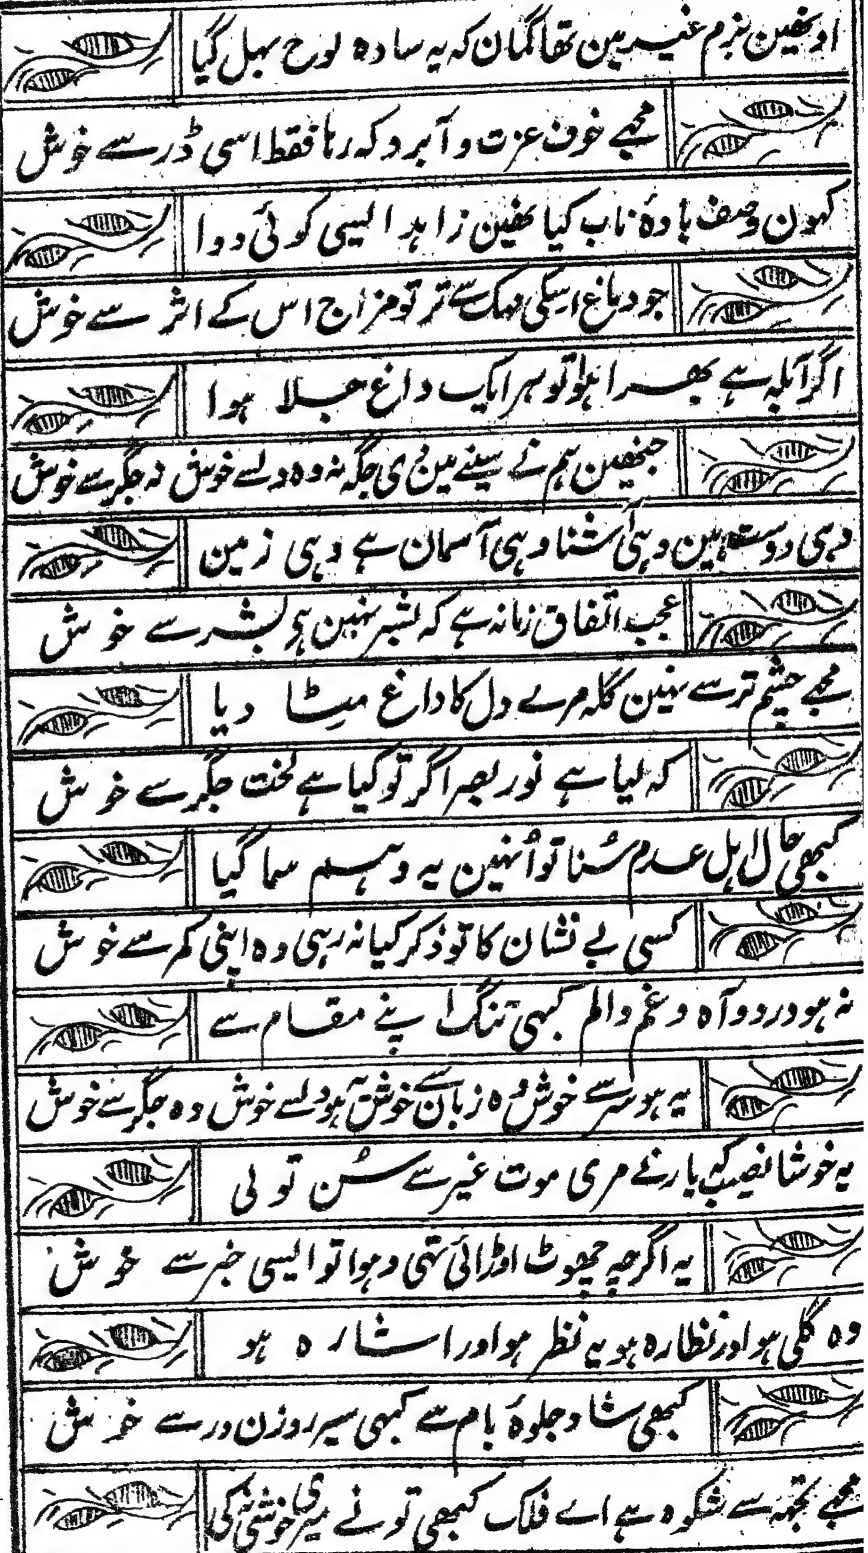 اونھین بزم غیر مین تھا گمان کہ یہ سادہ لوح بہل گیا
مجھے خوف عزت و آبرو کہ رہا فقط اسی ڈر سے خوش
کہون وصف بادۂ ناب کیا نھین زاہد ایسی کوئی دوا
جو دماغ اسکی مہک سے تر تو مزاج اس کے اثر سے خوش
اگر آبلہ ہے بھرا ہوا تو ہر ایک داغ جلا ہوا
جنھین ہم نے سینے مین دی جگہ نہ وہ دلسے خوش نہ جگر سے خوش
وہی دوست ہین وہی آشنا وہی آسمان ہے وہی زمین
عجب اتفاق زمانہ ہے کہ بشر نہین ہی بشر سے خوش
مجھے چشم تر سے نہین گلہ مرے دل کا داغ مٹا دیا
کہ لیا ہے نور بصر اگر تو کیا ہے لخت جگر سے خوش
کبھی حال اہل عدم سُنا تو اُنہین یہ وہم سما گیا
کسی بے نشان کا تو ذکر کیا نہ رہی وہ اپنی کمر سے خوش
نہ ہو درد و آہ و غم و الم کبھی تنگ اپنے مقام سے
یہ ہو سر سے خوش وہ زبان سے خوش یہ ہو دلسے خوش وہ جگر سے خوش
یہ خوشا نصیب کہ یار نے مری موت غیر سے سُن تو لی
یہ اگرچہ جھوٹ اوڑائی تھی وہ ہوا تو ایسی خبر سے خوش
وہ گلی ہو اور نظارہ ہو یہ نظر ہو اور اشارہ ہو
کبھی شاد جلوۂ بام سے کبھی سیر روزن در سے خوش
مجھے تجھہ سے شکوہ ہے اے فلک کبھی تو نے میری خوشی نہ کی